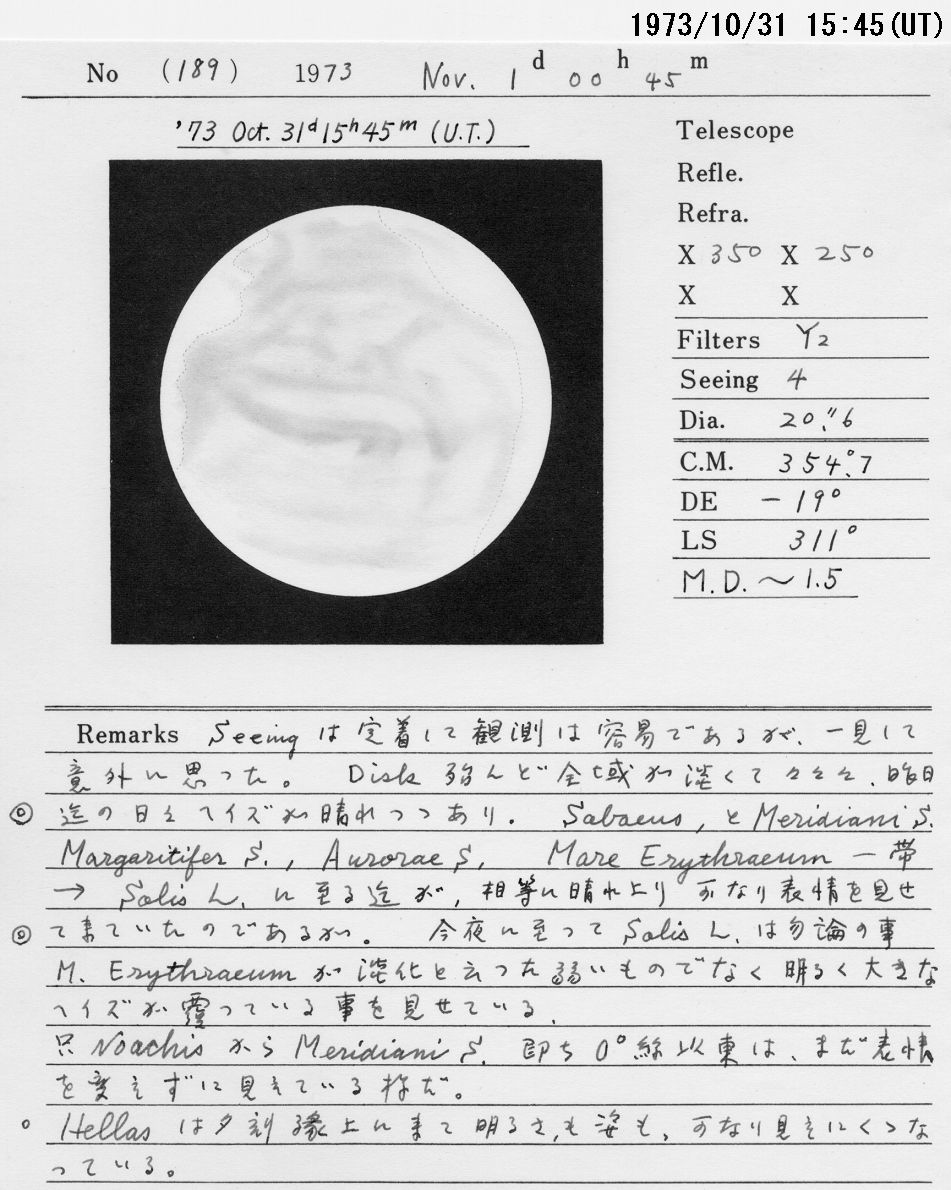 1973/10/31 15:45(UT)
No (189) 1973 Nov. 1 d 00 h 45 m
'73 Oct. 31d 15h 45m (U.T.)
Telescope
Refle.
Refra.
X 350 X 250
X X
Filters Y2
Seeing 4
Dia. 20."6
C.M. 354°.7
DE -19°
LS 311°
M.D. ～1.5
Remarks Seeing は定着して観測は容易であるが、一見して
意外に思った。 Disk 殆んど全域が淡くて 昨日
◎ 迄の日々ヘイズが晴れつつあり. Sabaeus, と Meridiani S.
Margaritifer S., Aurorae S, Mare Erythraeum 一帯
→ Solis L. に至る迄が, 相等に晴れ上り 可なり表情を見せ
◎ て来ていたのであるが。 今夜に至って Solis L. は勿論の事
M. Erythraeum が淡化と云った弱いものでなく 明るく大きな
ヘイズが覆っている事を見せている.
只 Noachis から Meridiani S. 即ち 0°線以東は、まだ表情
を変えずに見えている様だ。
○ Hellas は夕刻縁上に来て明るさ,も姿も、可なり見えにくくな
っている。